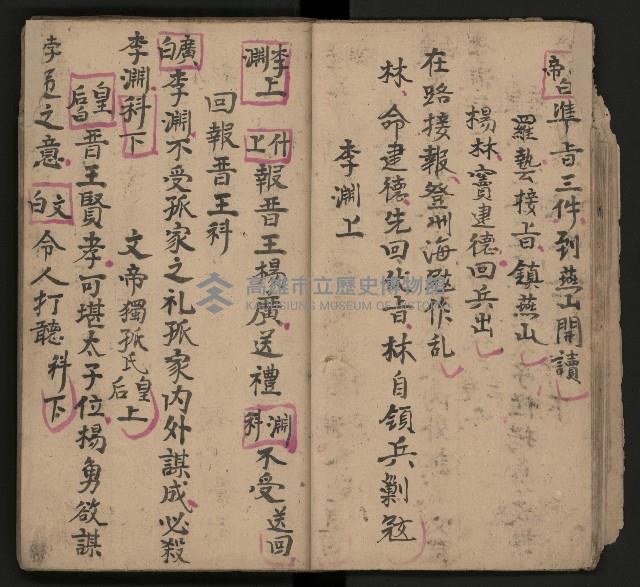 帝白 準旨三件到燕山開讀
羅藝接旨鎮燕山
楊林竇建德回兵出
在路接報登州海䝉作乱
林命建德先回代旨林自領兵剿冦
李淵上
李淵上 什上 報晋王楊廣送禮 淵科 不受送回
回報晋王科
廣白 李淵不受孤家之礼孤家内外謀成必殺
李淵科下 文帝獨孤氏皇后上
皇后白 晋王賢孝可堪太子位楊勇欲謀
之意 文白 令人打聽科下
高雄市立歷史博物館
KAOHSIUNG MUSEUM OF HISTORY